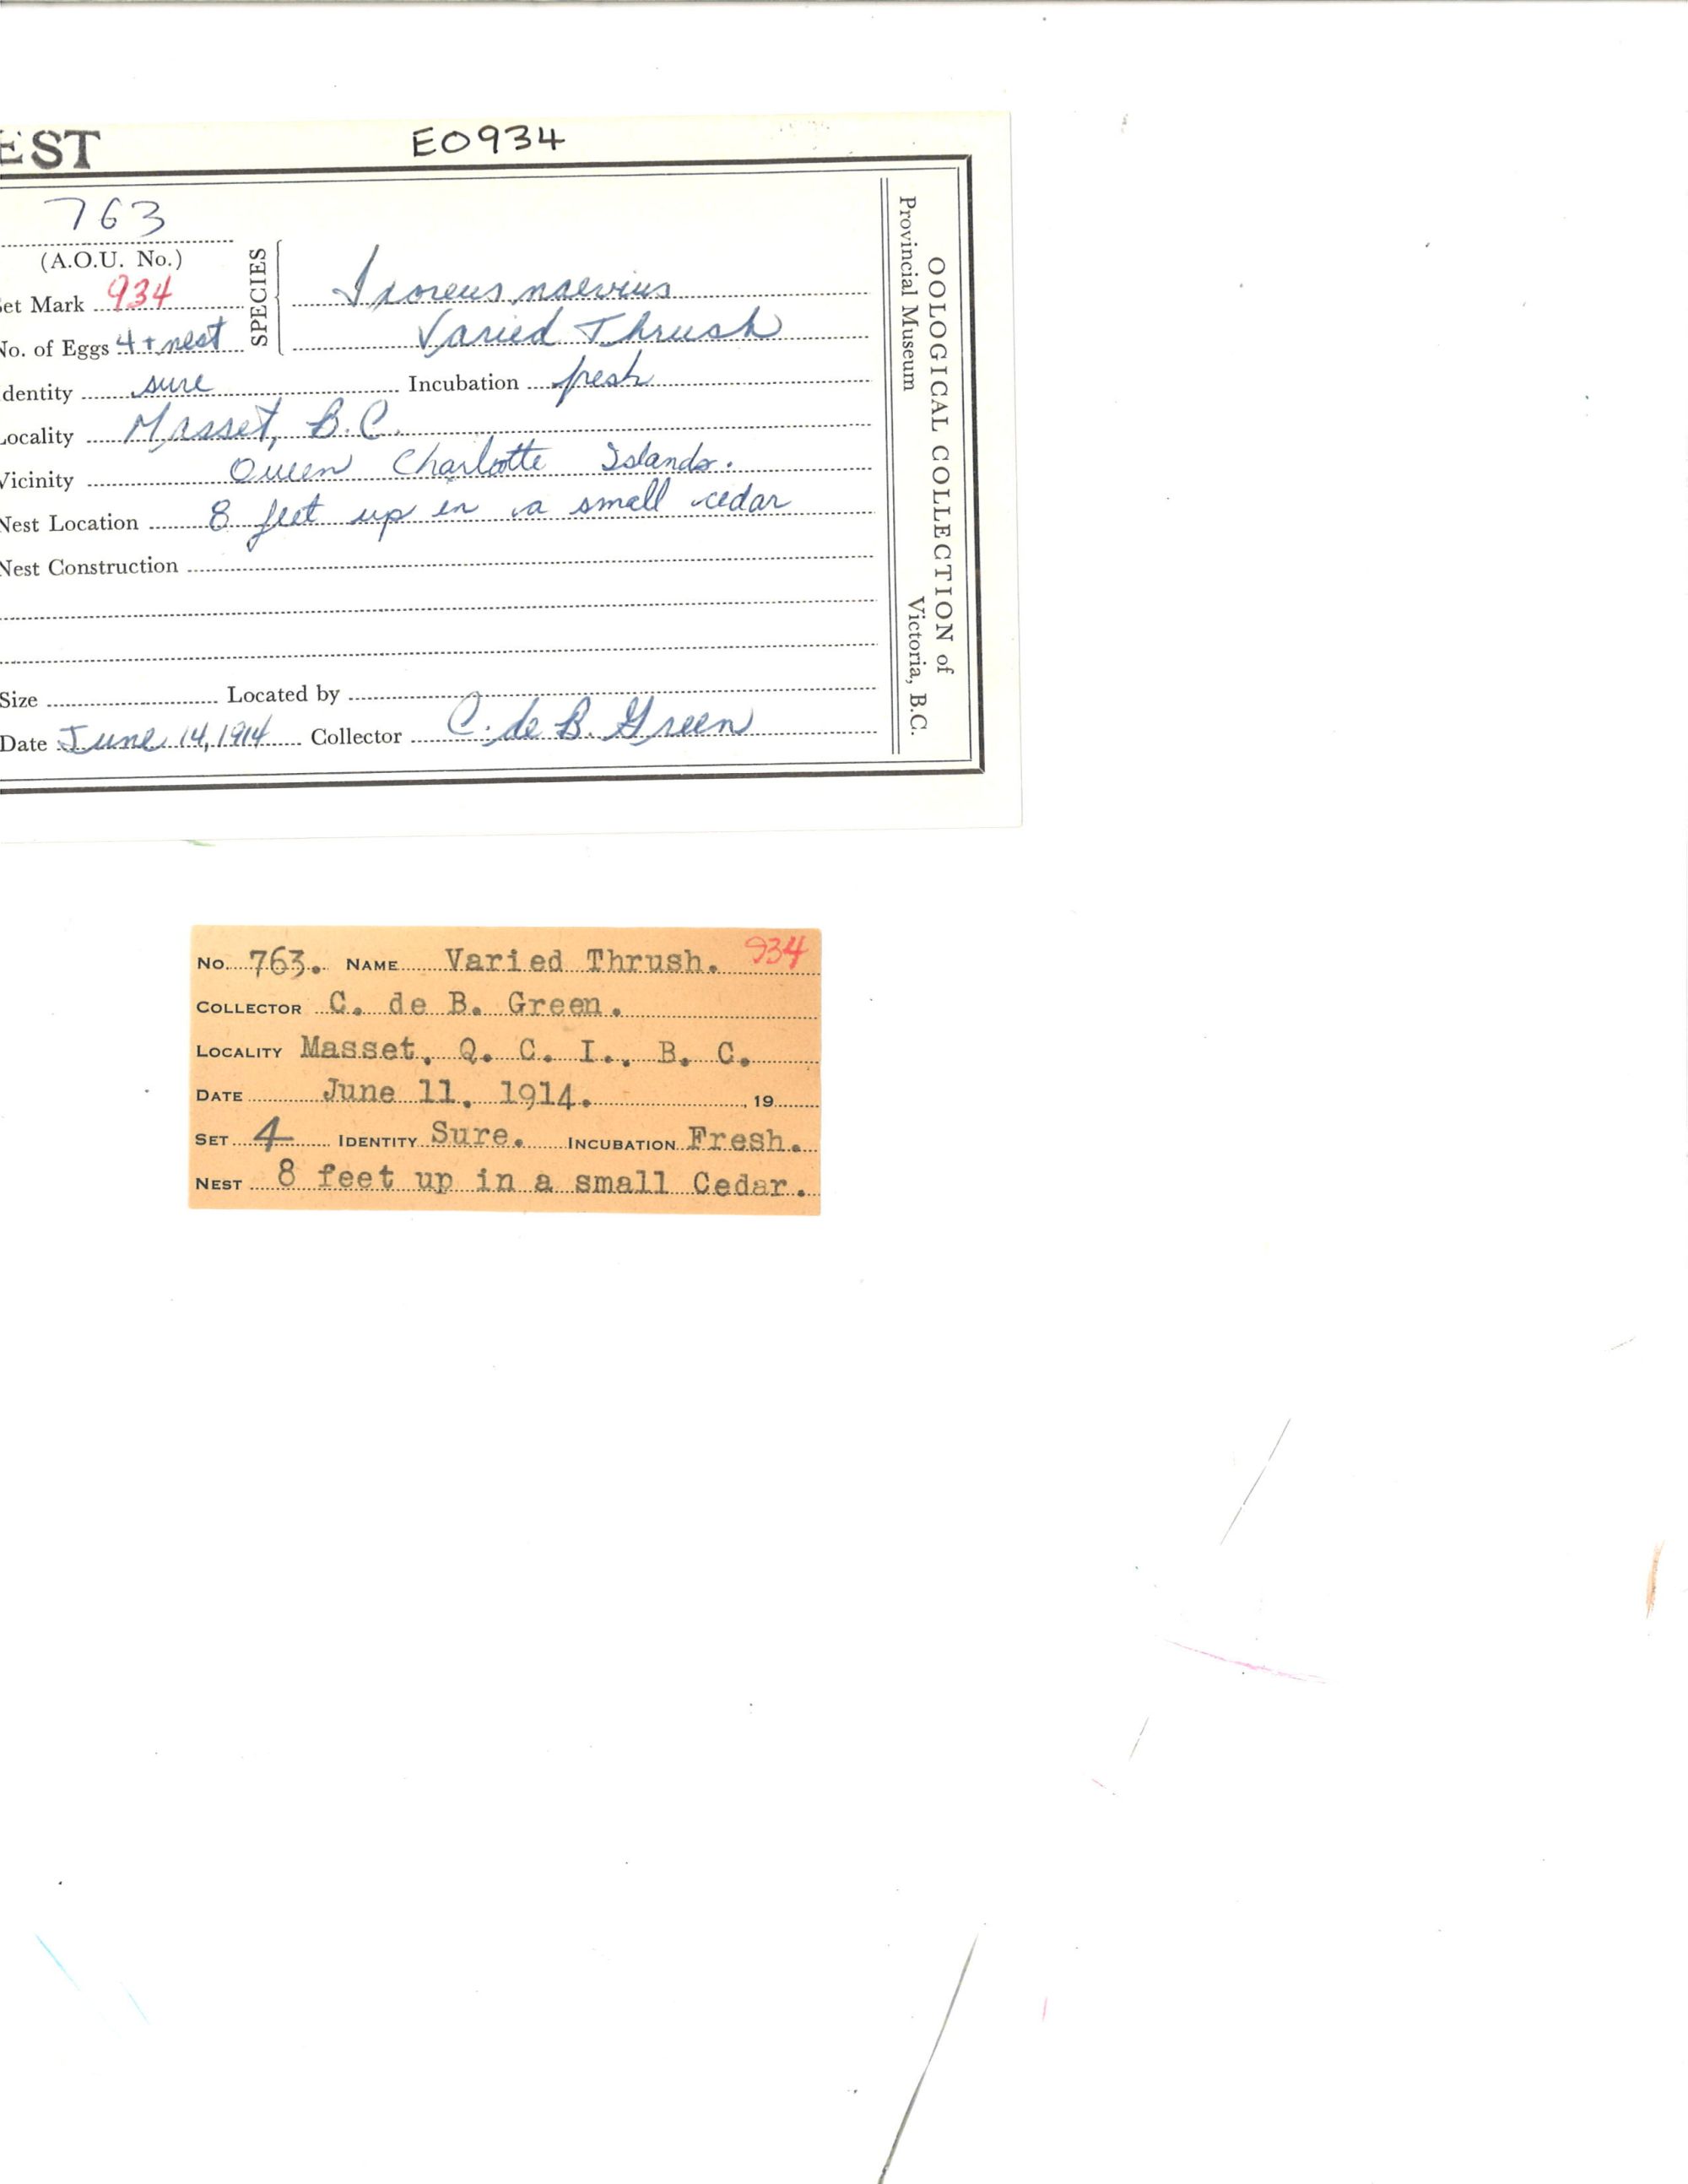 EST E0934
763
(A.O.U. No.)
et Mark 934 SPECIES Ixoreus naevius
No. of Eggs 4 + nest Varied Thrush
dentity sure Incubation fresh
Locality Masset, B.C.
Vicinity Queen Charlotte Islands.
Nest Location 8 feet up in a small cedar
Nest Construction
Size Located by
Date June 14, 1914 Collector C. de B. Green
OOLOGICAL COLLECTION of
Provincial Museum Victoria, B.C.
No. 763. NAME Varied Thrush. 934
COLLECTOR C. de B. Green.
LOCALITY Masset, Q. C. I., B. C.
DATE June 11, 1914. , 19
SET 4 IDENTITY Sure. INCUBATION Fresh.
NEST 8 feet up in a small Cedar.